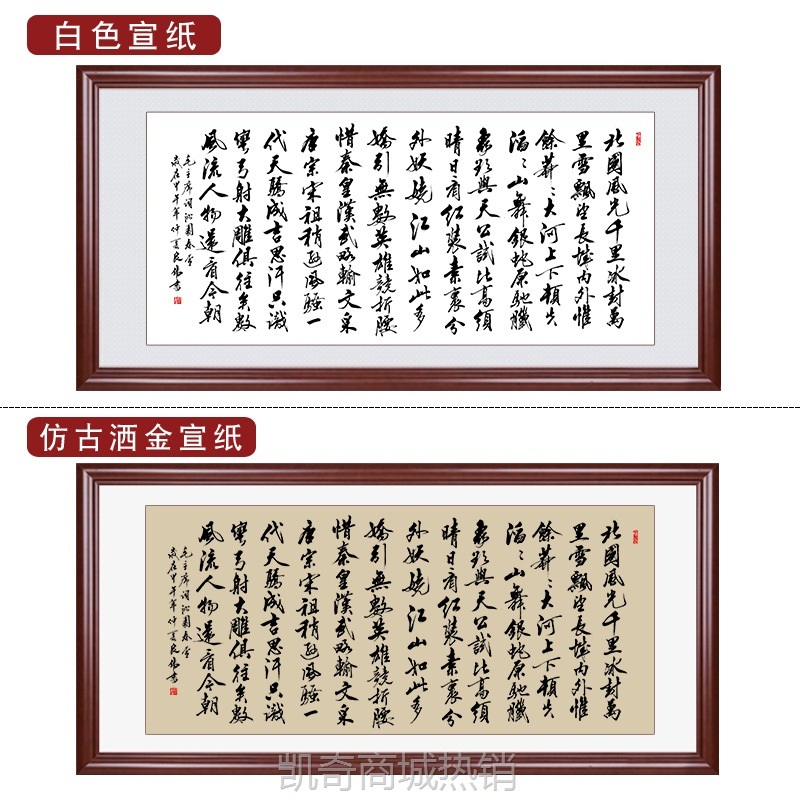 白色宣纸
北國風光千里冰封萬
里雪飄望長城內外惟
餘莽〻大河上下頓失
滔〻山舞銀蛇原馳蠟
象欲與天公試比高須
晴日看紅裝素裹分
外妖嬈江山如此多
嬌引無數英雄競折腰
惜秦皇漢武略輸文采
唐宗宋祖稍遜風騷一
代天驕成吉思汗只識
彎弓射大雕俱往矣數
風流人物還看今朝
毛主席詞沁園春雪
歲在甲午年仲夏良書
仿古洒金宣纸
北國風光千里冰封萬
里雪飄望長城內外惟
餘莽〻大河上下頓失
滔〻山舞銀蛇原馳蠟
象欲與天公試比高須
晴日看紅裝素裹分
外妖嬈江山如此多
嬌引無數英雄競折腰
惜秦皇漢武略輸文采
唐宗宋祖稍遜風騷一
代天驕成吉思汗只識
彎弓射大雕俱往矣數
風流人物還看今朝
毛主席詞沁園春雪
歲在甲午年仲夏良書
凯奇商城热销